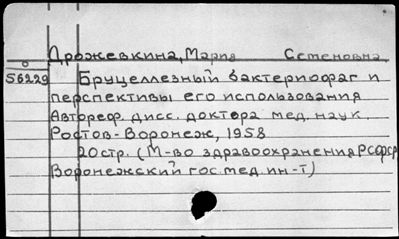 Дрожевкина, Мария Семеновна
56229 Бруцеллезный бактериофаг и
перспективы его использования
Автореф. дисс. доктора мед. наук.
Ростов-Воронеж, 1958
20 стр. (М-во здравоохранения РСФСР
Воронежский гос. мед. ин-т)